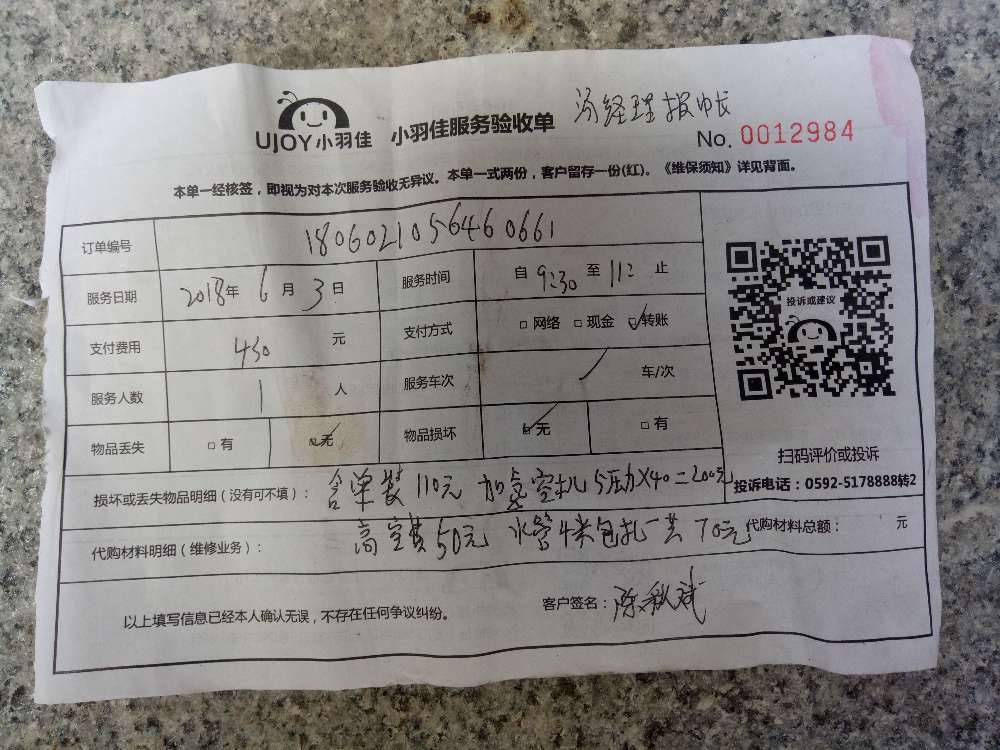 UJOY小羽佳 小羽佳服务验收单 经理报
No. 0012984
本单一经核签，即视为对本次服务验收无异议。本单一式两份，客户留存一份(红)。《维保须知》详见背面。
订单编号 180602105646 0661
服务日期 2018年 6月 3日 服务时间 自 9:30 至 11: 止
支付费用 450 元 支付方式 □网络 □现金 ☑转账
服务人数 1 人 服务车次 / 车/次
物品丢失 □有 ☑无 物品损坏 ☑无 □有
投诉或建议
扫码评价或投诉
投诉电话：0592-5178888转2
损坏或丢失物品明细（没有可不填）： 含单装110元 加 空扎 5压力X40=200元
代购材料明细（维修业务）： 高空费50元 水管4米包扎一共70元 代购材料总额： 元
以上填写信息已经本人确认无误，不存在任何争议纠纷。 客户签名：陈秋斌